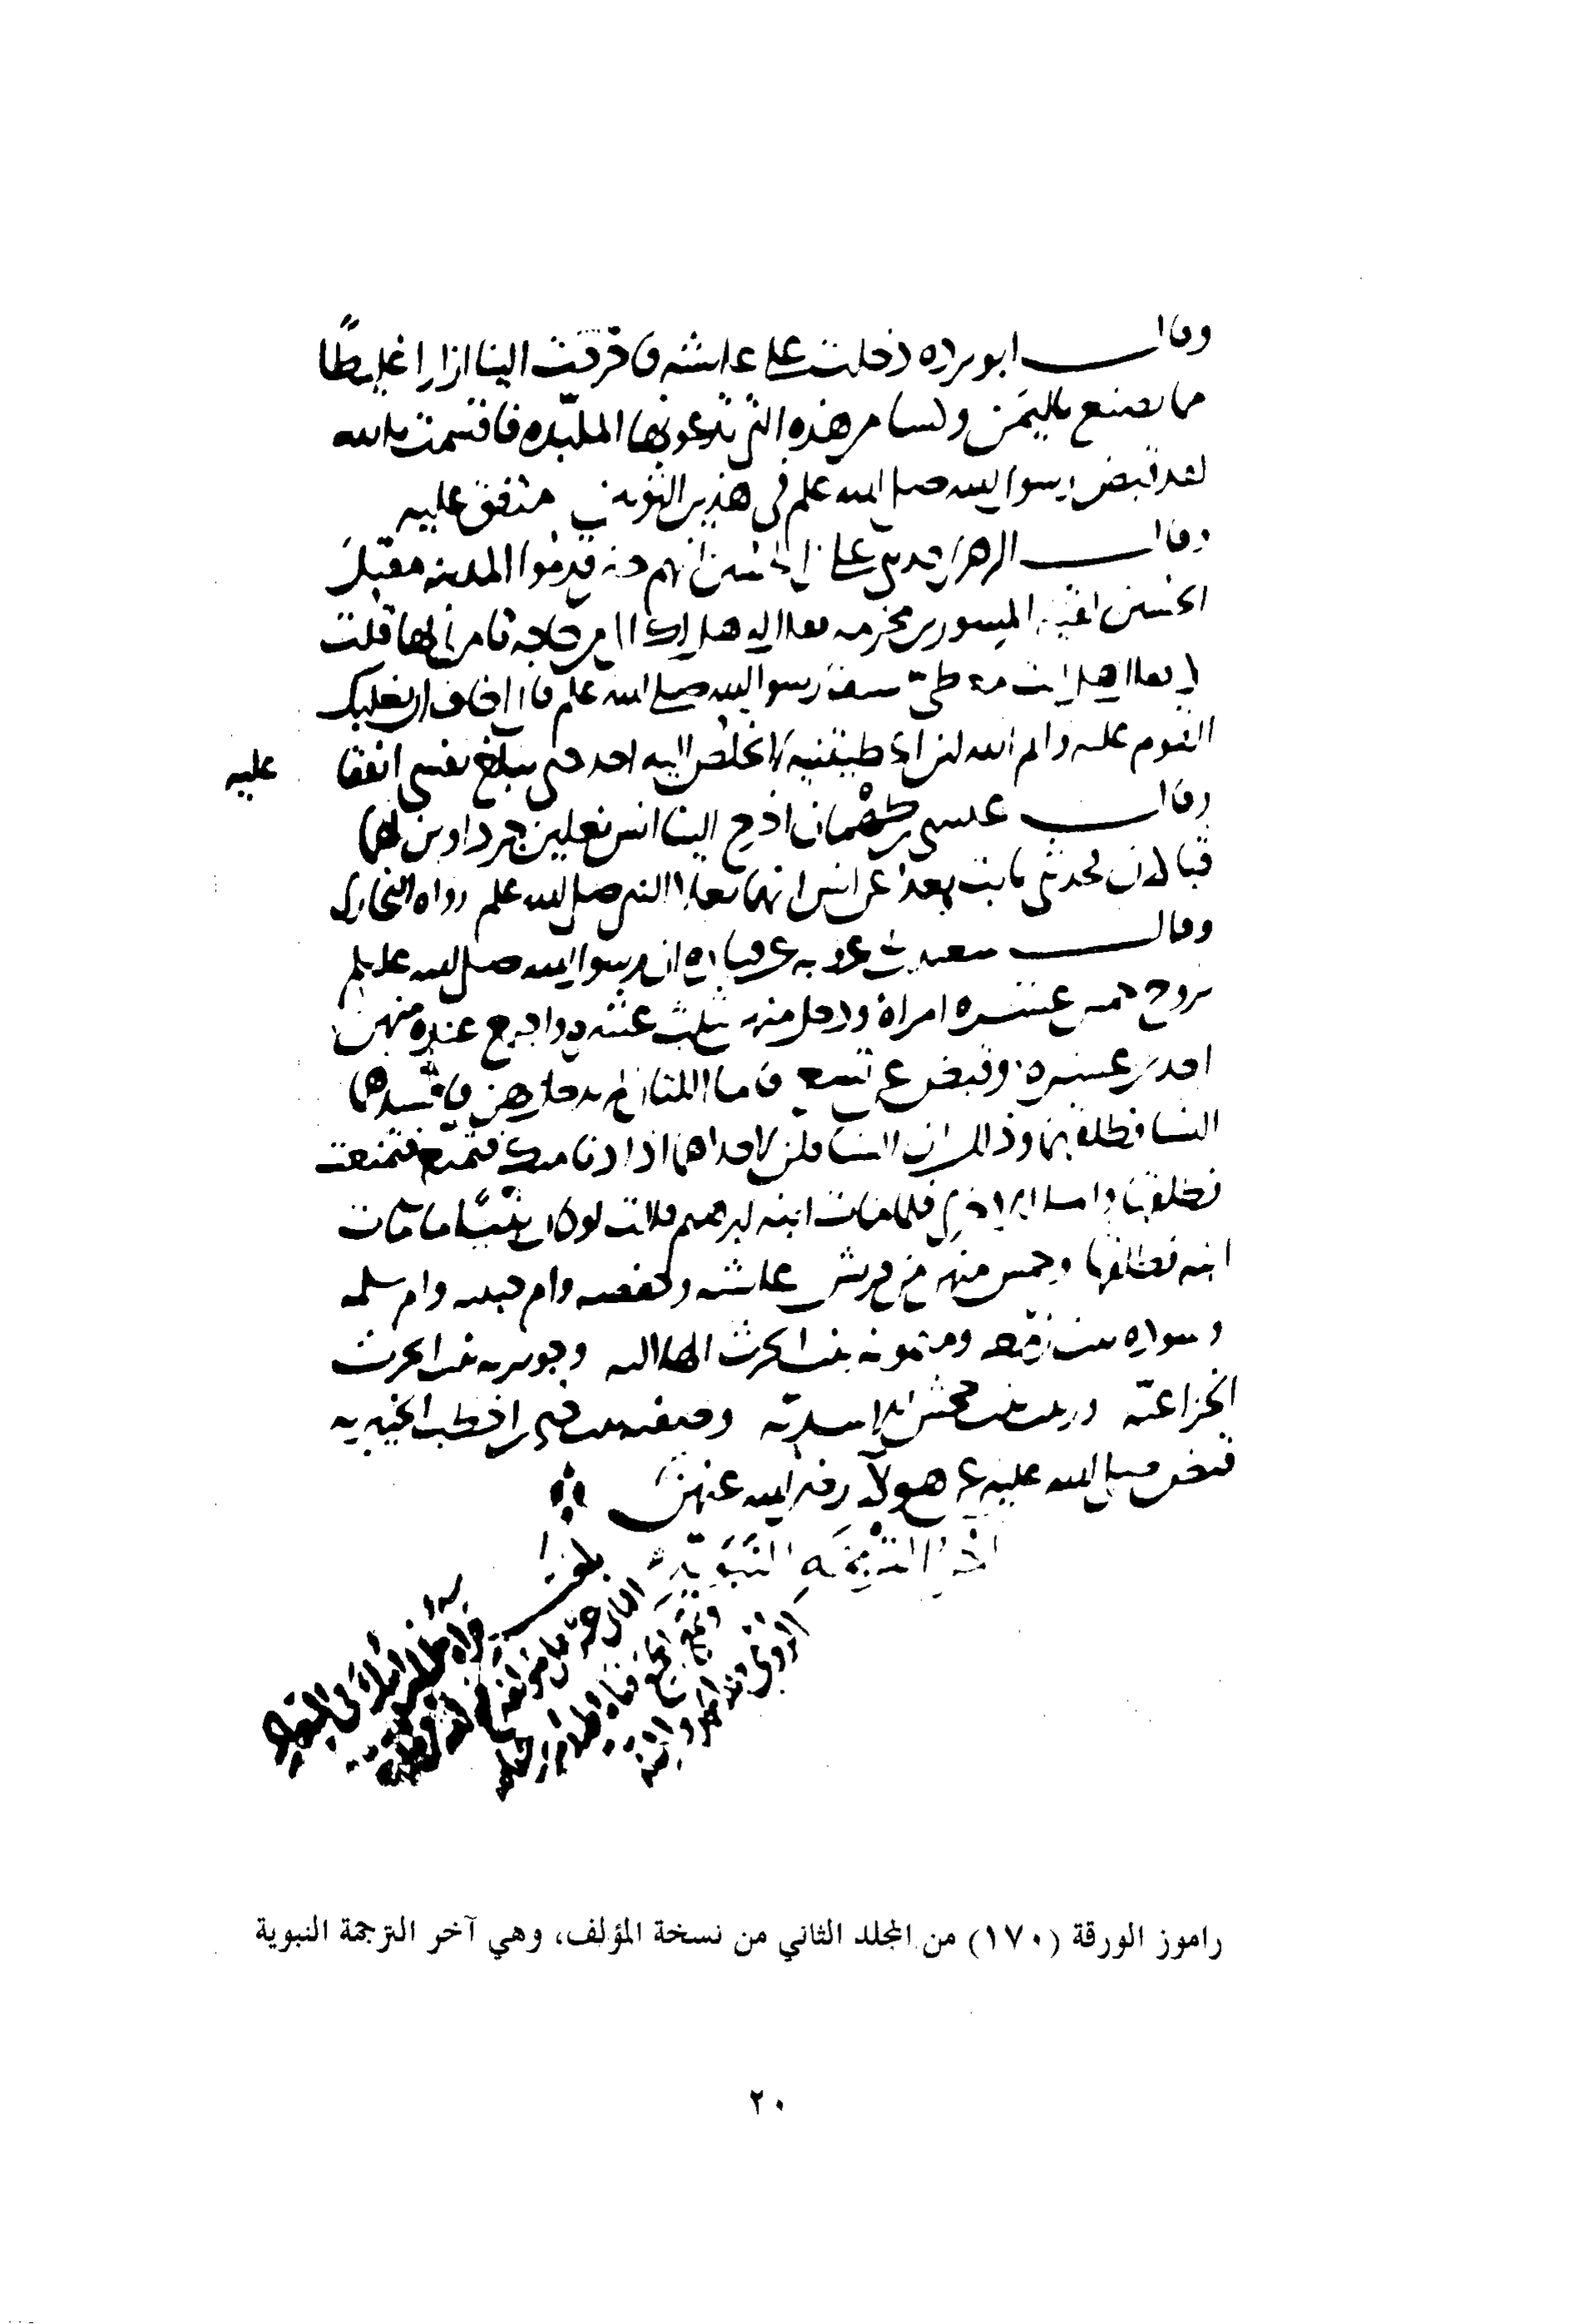 وقال ابو برده دخلت على عايشه فاخرجت الينا ازارا غليظًا
مما يصنع باليمن وكسا من هذه التي تدعونها الملبّده فاقسمت بالله
لقد قبض رسول الله صلى الله علم في هذين الثوبين متفق عليه
وقال الزهري حدثني علي بن الحسين انهم حين قدموا المدينه مقتل
الحسين لقيه المسور بن مخرمه فقال له هل لك الي من حاجه تامرني بها قلت
لا فقال هل انت معطيّ سيف رسول الله صلى الله علم فاني اخاف ان يغلبك
القوم عليه وايم الله لئن اعطيتنيه لا يخلص اليه احد حتى يبلغ نفسي اتفقا عليه
وقال عيسى بن طهمان اخرج الينا انس نعلين جرداوين لهما
قبالان فحدثني ثابت بعد عن انس انهما نعلا النبي صلى الله علم رواه البخاري
وقال سعيد بن ابي عروبه عن قتاده ان رسول الله صلى الله عليه
تزوج خمس عشره امراة ودخل منهن بثلاث عشره واجتمع عنده منهن
احدى عشره وقبض عن تسع فاما اللتان لم يدخل بهن فافسدهما
النسا فطلقهما وذلك ان النسا قلن لاحداهما اذا دنا منك فتمنعي فتمنعت
فطلقها واما الاخرى فلما مات ابنه ابرهيم قالت لو كان نبيًا ما مات
ابنه فطلقها وخمس منهن من قريش عايشه وحفصه وام حبيبه وام سلمه
وسوده بنت زمعه وميمونه بنت الحرث الهلاليه وجويريه بنت الحرث
الخزاعيّه وزينب بنت جحش الاسديّه وصفيه بنت حيي بن اخطب الخيبريه
قبض صلى الله عليه عن هولا رضي الله عنهن
آخر الترجمه النبويه
راموز الورقة (١٧٠) من المجلد الثاني من نسخة المؤلف، وهي آخر الترجمة النبوية
٢٠